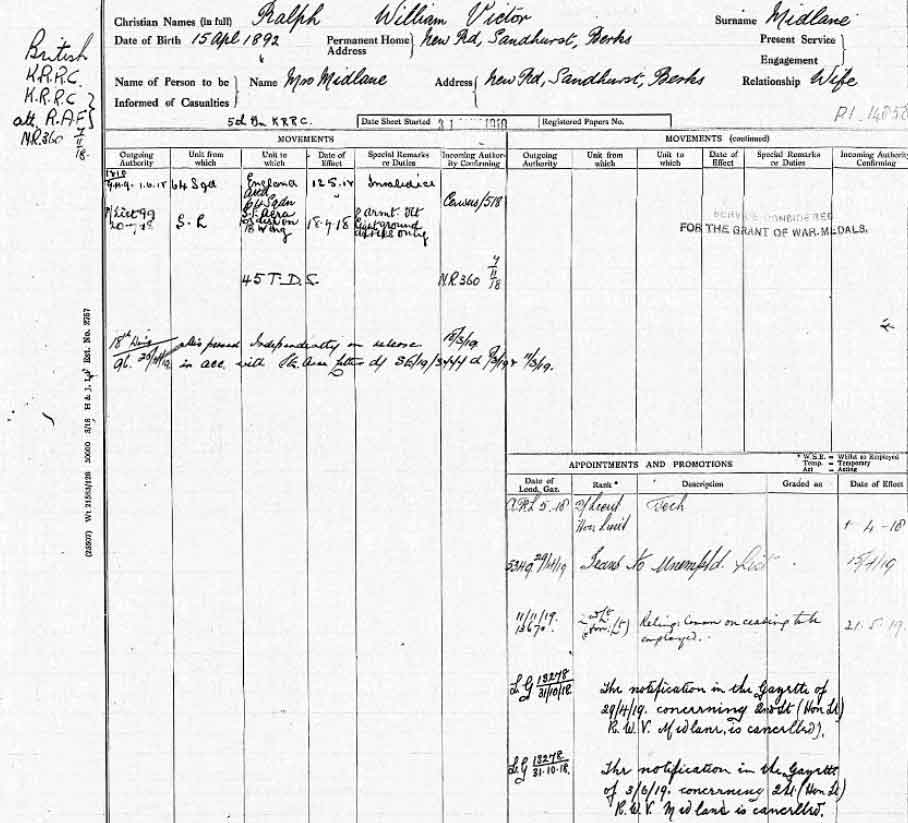 Christian Names (in full) Ralph William Victor Surname Midlane
Date of Birth 15 Apl 1892 Permanent Home Address } New Rd, Sandhurst, Berks Present Service Engagement }
Name of Person to be Informed of Casualties } Name Mrs Midlane Address New Rd, Sandhurst, Berks Relationship Wife
British
K.R.R.C.
K.R.R.C }
att. R.A.F }
N.R.360 7/11/18.
5th Bn K.R.R.C. Date Sheet Started 1918 Registered Papers No.
MOVEMENTS
Outgoing Authority Unit from which Unit to which Date of Effect Special Remarks re Duties Incoming Authority Confirming
1918
1.6.18 64 Sqd England 12.5.18 Invalided
64 Sqdn Census/518
20-7-18 S.L 18 Wing 18.7.18 ground
45 T.D.S. N.R.360 7/11/18
18th Wing dispersed Independently on release 15/3/19
in acc. with
MOVEMENTS (continued)
Outgoing Authority Unit from which Unit to which Date of Effect Special Remarks re Duties Incoming Authority Confirming
SERVICE CONSIDERED
FOR THE GRANT OF WAR MEDALS.
(25507) Wt 21583/128 30000 3/18 H & J, Ld Est. No. 2757
APPOINTMENTS AND PROMOTIONS
* W.S.E. = Whilst so Employed
Temp. = Temporary
Act = Acting
Date of Lond. Gaz. Rank * Description Graded as Date of Effect
APL 5.18 2/Lieut Tech
Hon Lieut 4-18
29/4/19 Trans to Unempld. List 15/4/19
11/11/19. Relinq: Comm on ceasing to be
employed. 21.5.19.
L G 13278 31/10/18 The notification in the Gazette of
29/4/19. concerning 2nd Lt (Hon Lt)
R.W.V. Midlane, is cancelled).
L G 13278 31.10.18. The notification in the Gazette
of 3/6/19. concerning 2Lt (Hon Lt)
R.W.V. Midlane is cancelled.